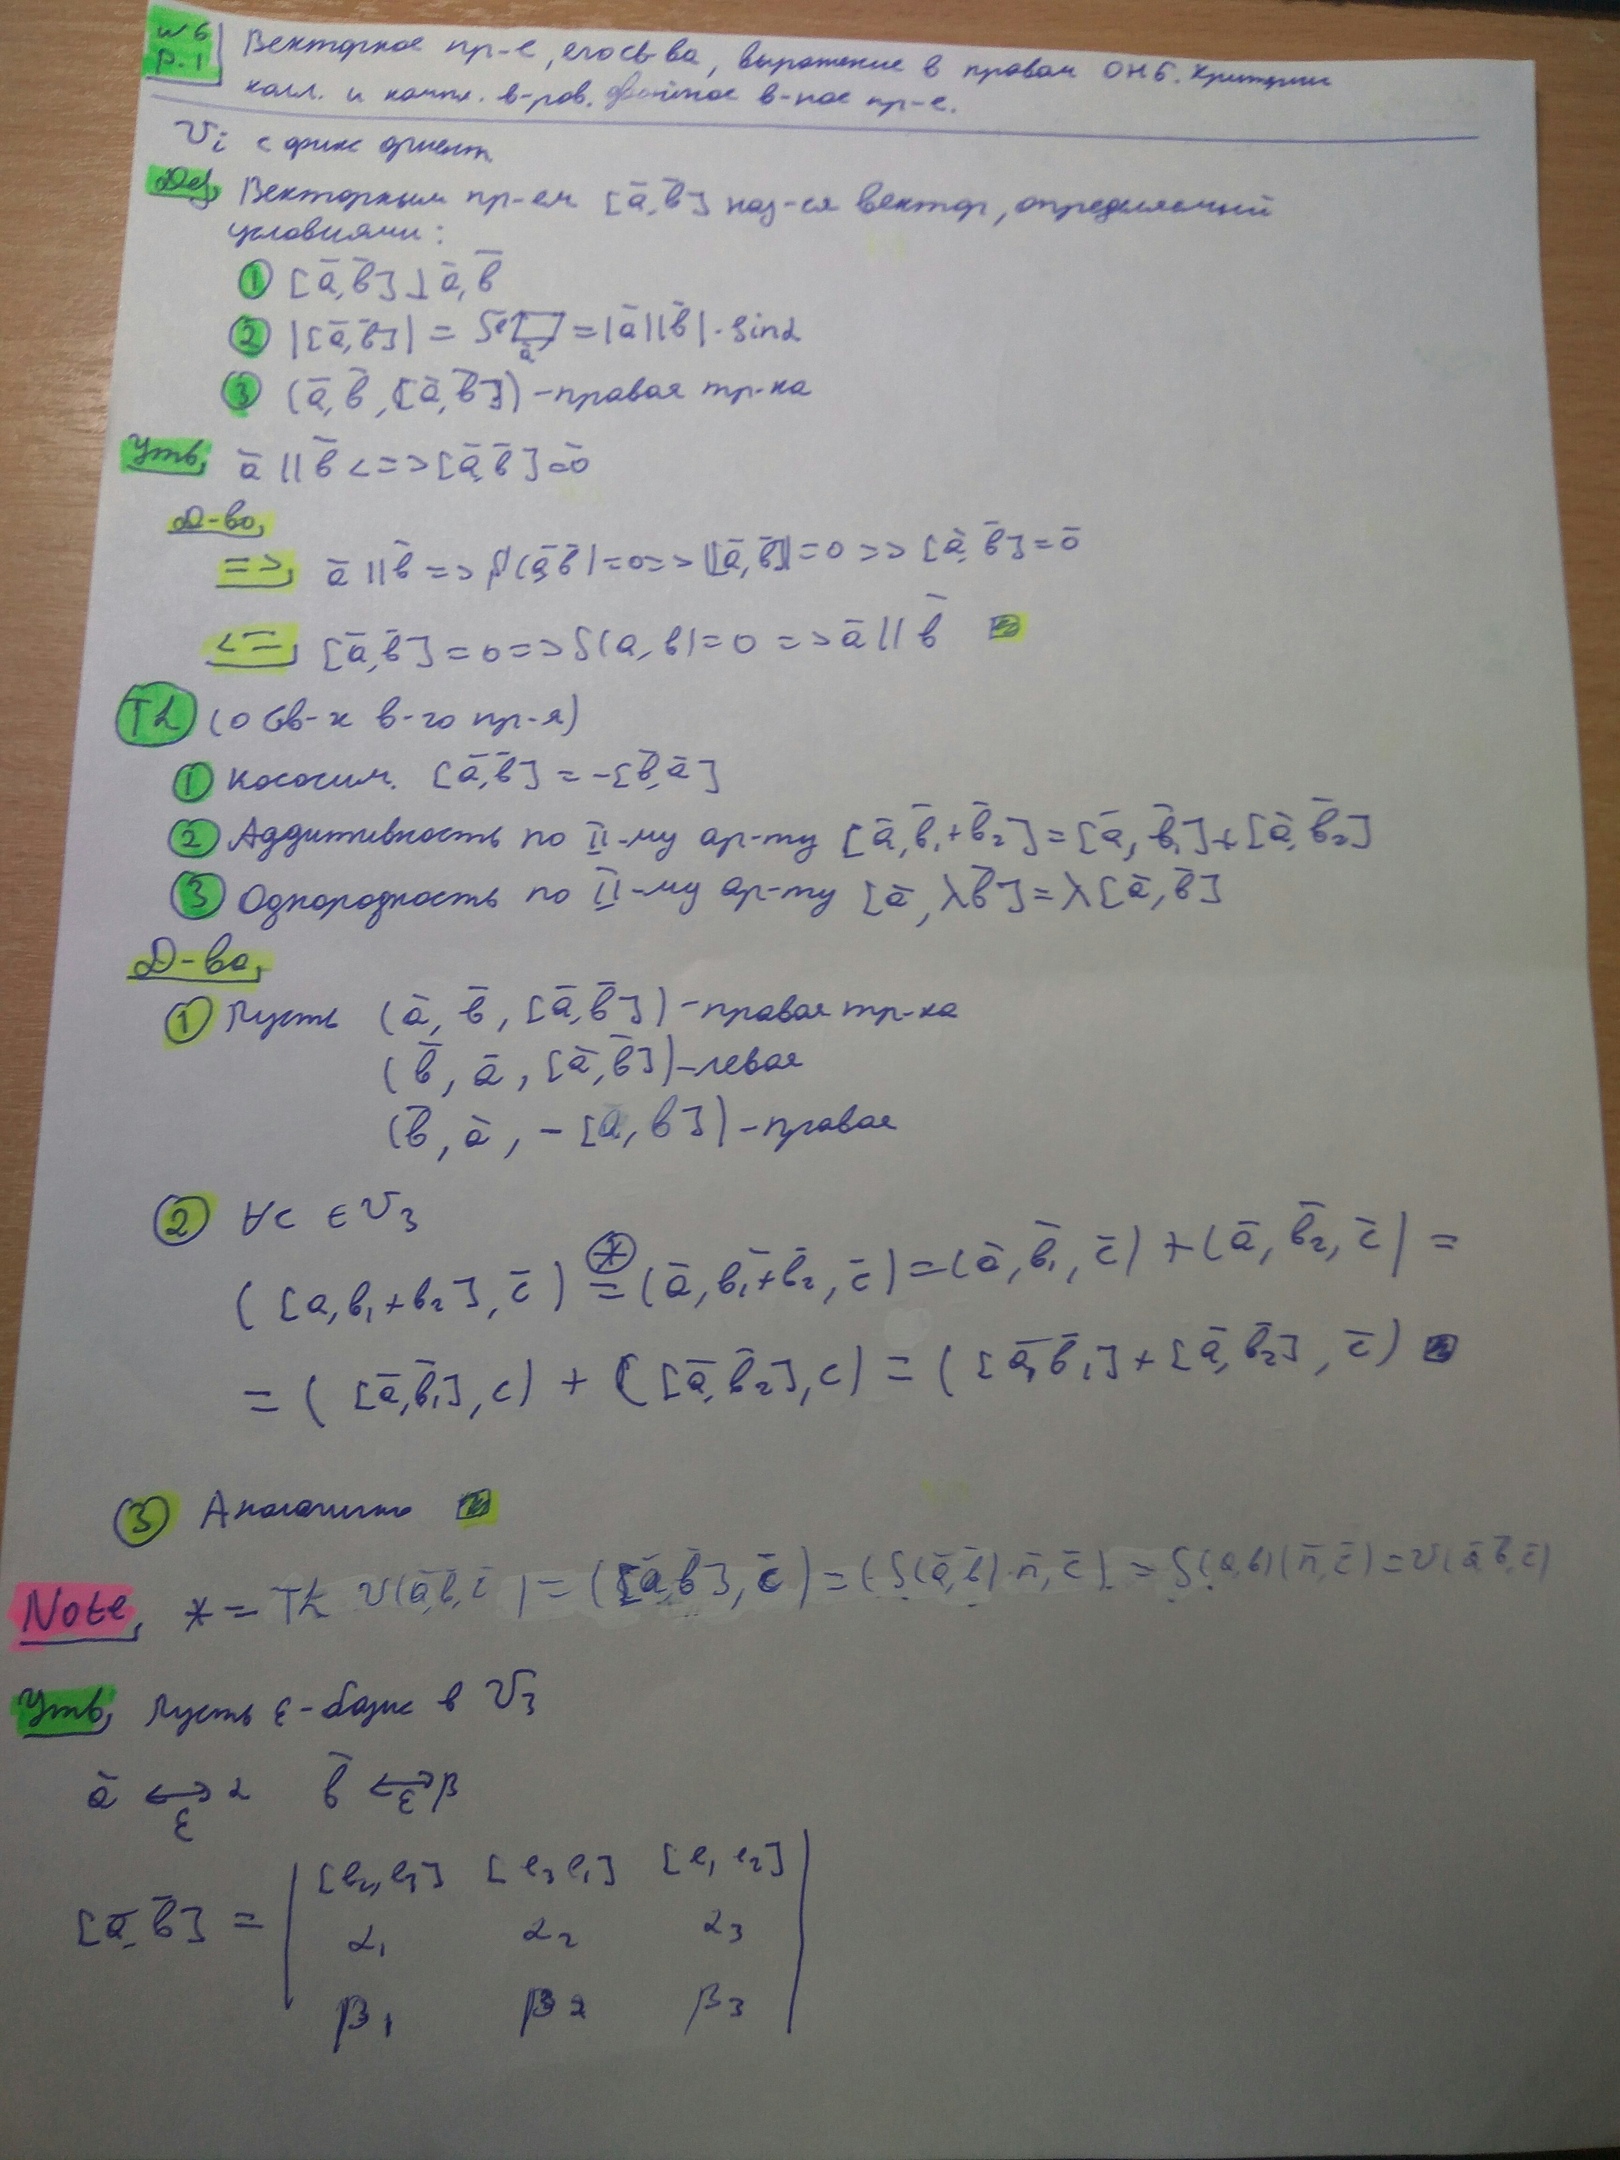 №6 p.1 Векторное пр-е, его св-ва, выражение в правом ОНБ. Критерии
колл. и компл. в-ров. двойное в-ное пр-е.
V_i с фикс ориент.
Def, Векторным пр-ем [ā, b̄] наз-ся вектор, определяемый
условиями:
① [ā, b̄] ⊥ ā, b̄
② |[ā, b̄]| = S = |ā||b̄| · sinα
③ (ā, b̄, [ā, b̄]) – правая тр-ка
Утв, ā || b̄ <=> [ā, b̄] = ō
Д-во,
=>, ā || b̄ => S(ā, b̄) = 0 => |[ā, b̄]| = 0 => [ā, b̄] = ō
<=, [ā, b̄] = 0 => S(a, b) = 0 => ā || b̄
Th (о св-х в-го пр-я)
① Кососим. [ā, b̄] = -[b̄, ā]
② Аддитивность по II-му ар-ту [ā, b̄₁+b̄₂] = [ā, b̄₁] + [ā, b̄₂]
③ Однородность по II-му ар-ту [ā, λb̄] = λ[ā, b̄]
Д-во,
① Пусть (ā, b̄, [ā, b̄]) – правая тр-ка
(b̄, ā, [ā, b̄]) – левая
(b̄, ā, -[ā, b]) – правая
② ∀c ∈ V₃
([a, b₁+b₂], c̄) =^(*) (ā, b̄₁+b̄₂, c̄) = (ā, b̄₁, c̄) + (ā, b̄₂, c̄) =
= ([ā, b̄₁], c) + ([ā, b̄₂], c) = ([ā, b̄₁] + [ā, b̄₂], c̄)
③ Аналогично
Note, * = Th V(ā, b̄, c̄) = ([ā, b̄], c̄) = (S(ā, b̄) · n̄, c̄) = S(a, b)(n̄, c̄) = V(ā, b̄, c̄)
Утв, Пусть ε – базис в V₃
ā ⟷_ε α b̄ ⟷_ε β
[ā, b̄] = | [e₂, e₃] [e₃ e₁] [e₁ e₂] |
α₁ α₂ α₃
β₁ β₂ β₃